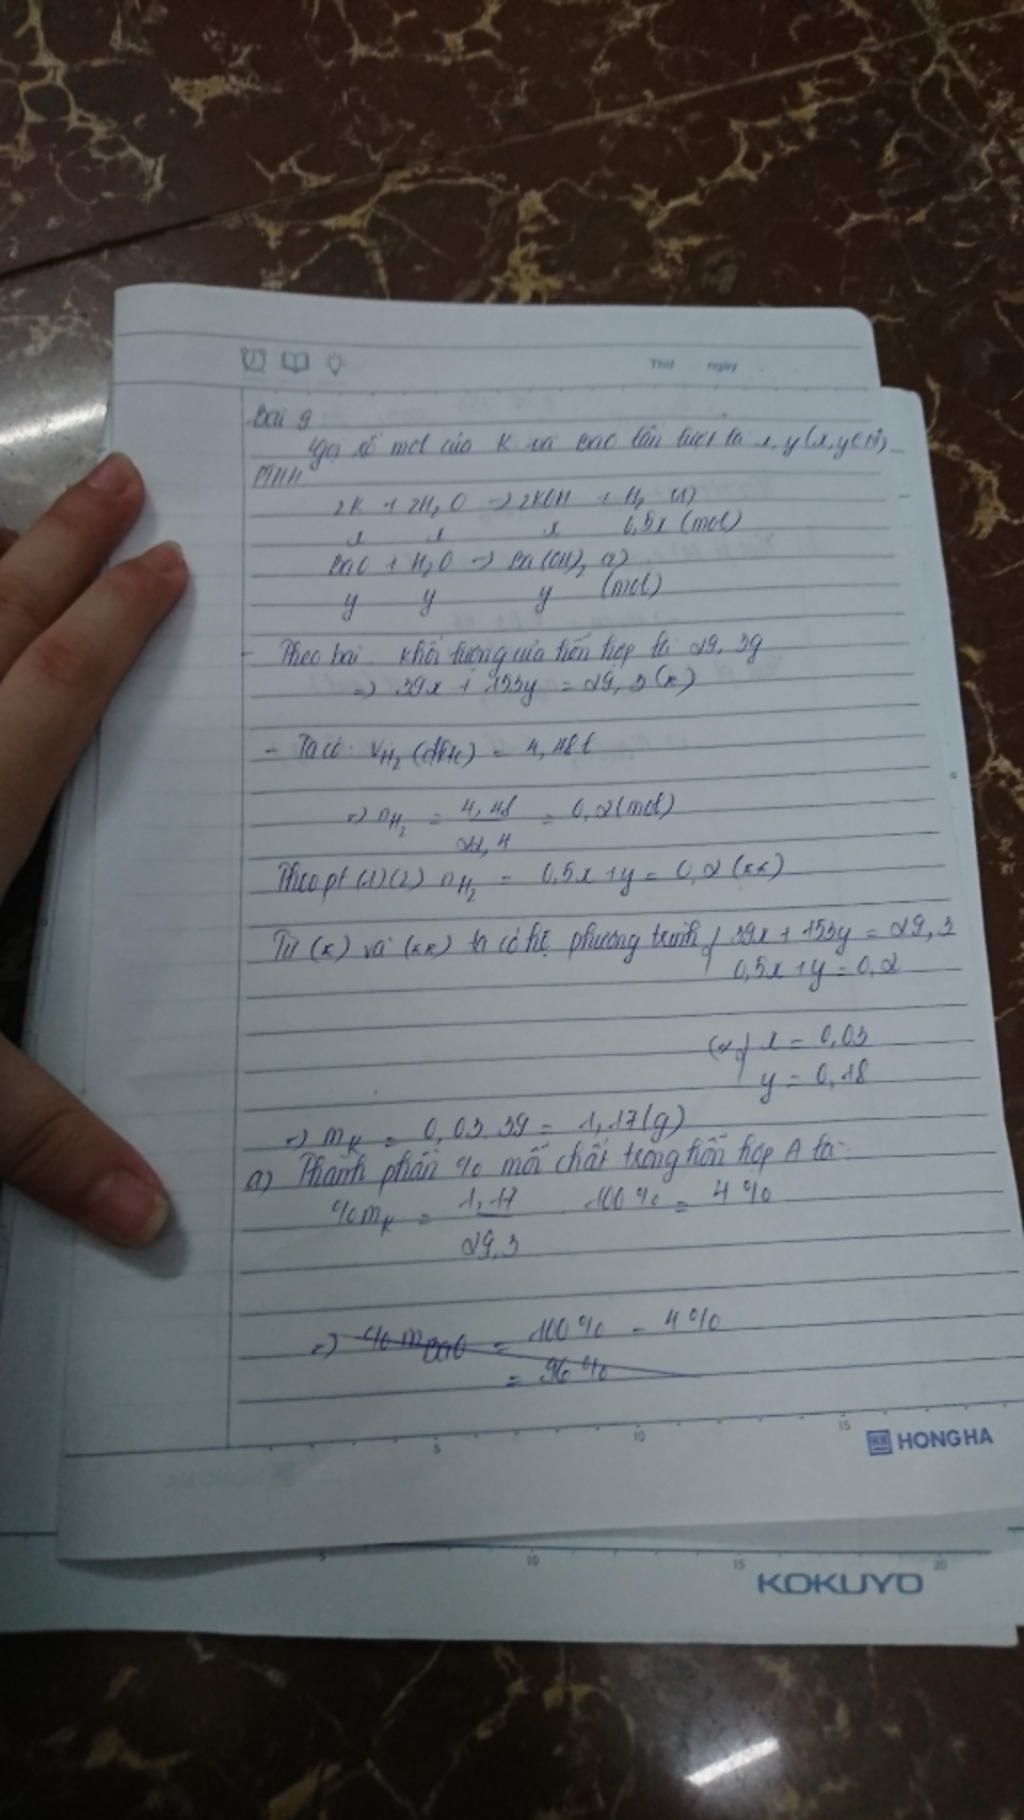 Thứ ngày
Bài 9
Gọi số mol của K và BaO lần lượt là x, y (x, y ∈ N*)
PTHH
2K + 2H₂O → 2KOH + H₂ (1)
x x x 0,5x (mol)
BaO + H₂O → Ba(OH)₂ (2)
y y y (mol)
- Theo bài. Khối lượng của hỗn hợp là 29,3g
=> 39x + 153y = 29,3 (*)
- Ta có: VH₂ (đktc) = 4,48l
=> nH₂ = 4,48 / 22,4 = 0,2 (mol)
Theo pt (1) (2) nH₂ = 0,5x + y = 0,2 (**)
Từ (*) và (**) ta có hệ phương trình { 39x + 153y = 29,3
0,5x + y = 0,2
{ x = 0,03
y = 0,18
=> mK = 0,03.39 = 1,17 (g)
a) Thành phần % mỗi chất trong hỗn hợp A là:
%mK = 1,17 / 29,3 . 100% = 4%
=> %mBaO = 100% - 4%
= 96%
5 10 15
HONG HA
5 10 15 20
KOKUYO